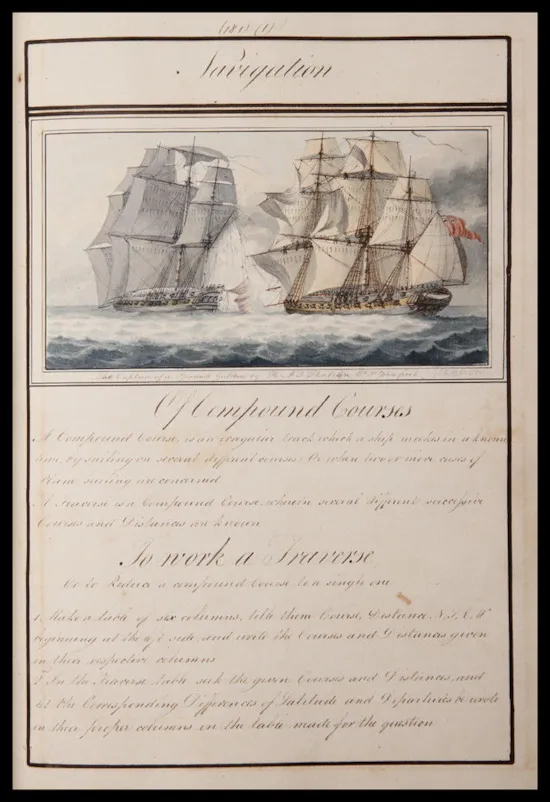 Navigation
The Capture of a French
Of Compound Courses
A Compound Course, is an irregular track which a ship makes in a known
time, by sailing on several different courses; Or when two or more cases of
Plane sailing are concerned
A Traverse is a Compound Course, wherein several different successive
Courses and Distances are known
To work a Traverse,
Or to Reduce a compound Course to a single one
1. Make a table of six columns, title them Course, Distance N, S, E, W
beginning at the left side, and write the Courses and Distances given
in their respective columns
2 In the Traverse table seek the given Courses and Distances, and
let the Corresponding Differences of Latitude and Departures be wrote
in their proper columns in the table made for the question